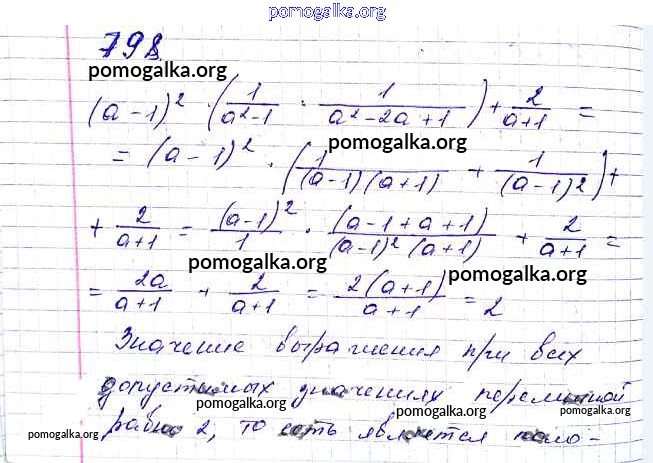 pomogalka.org
798.
pomogalka.org
(a-1)² · (1/(a²-1) · 1/(a²-2a+1)) + 2/(a+1) =
pomogalka.org
= (a-1)² · (1/((a-1)(a+1)) + 1/(a-1)²) +
+ 2/(a+1) = (a-1)²/1 · (a-1+a+1)/((a-1)²(a+1)) + 2/(a+1) =
pomogalka.org pomogalka.org
= 2a/(a+1) + 2/(a+1) = 2(a+1)/(a+1) = 2
Значение выражения при всех
допустимых значениях переменной
pomogalka.org pomogalka.org pomogalka.org
равно 2, то есть является поло-
pomogalka.org